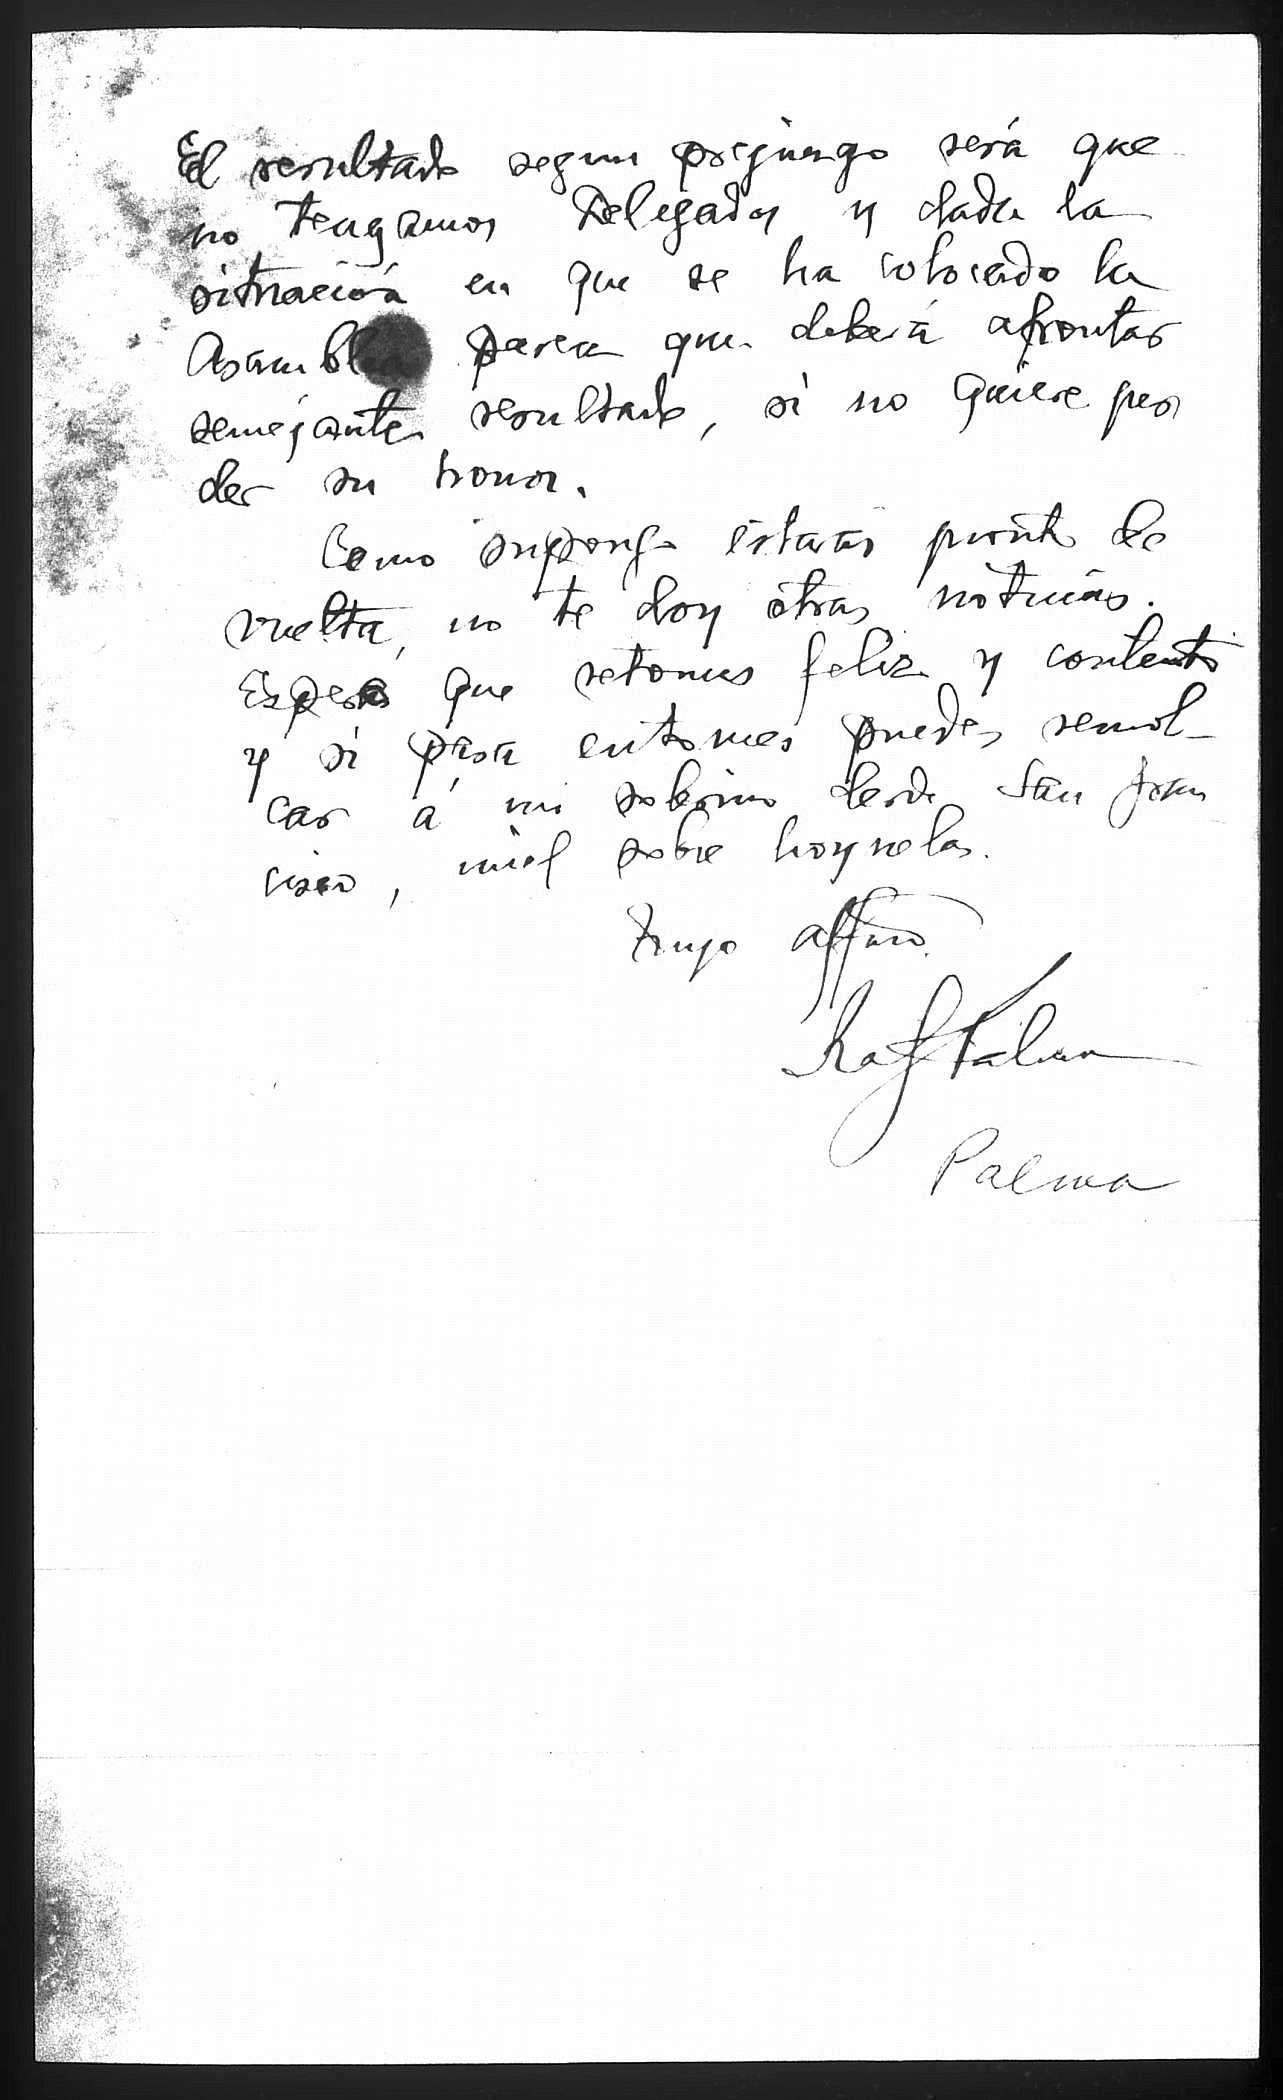 El resultado segun prejuzgo será que
no tengamos Delegados y dada la
situación en que se ha colocado la
Asamblea parece que deberá afrontar
semejante resultado, si no quiere per
der su honor.
Como supongo estarás pronto de
vuelta, no te doy otras noticias.
Espero que retornes feliz y contento
y si para entonces puedes remol-
car á mi sobrino desde San Fran
cisco, miel sobre hoyuelas.
Tuyo affmo.
Raf Palma
Palma